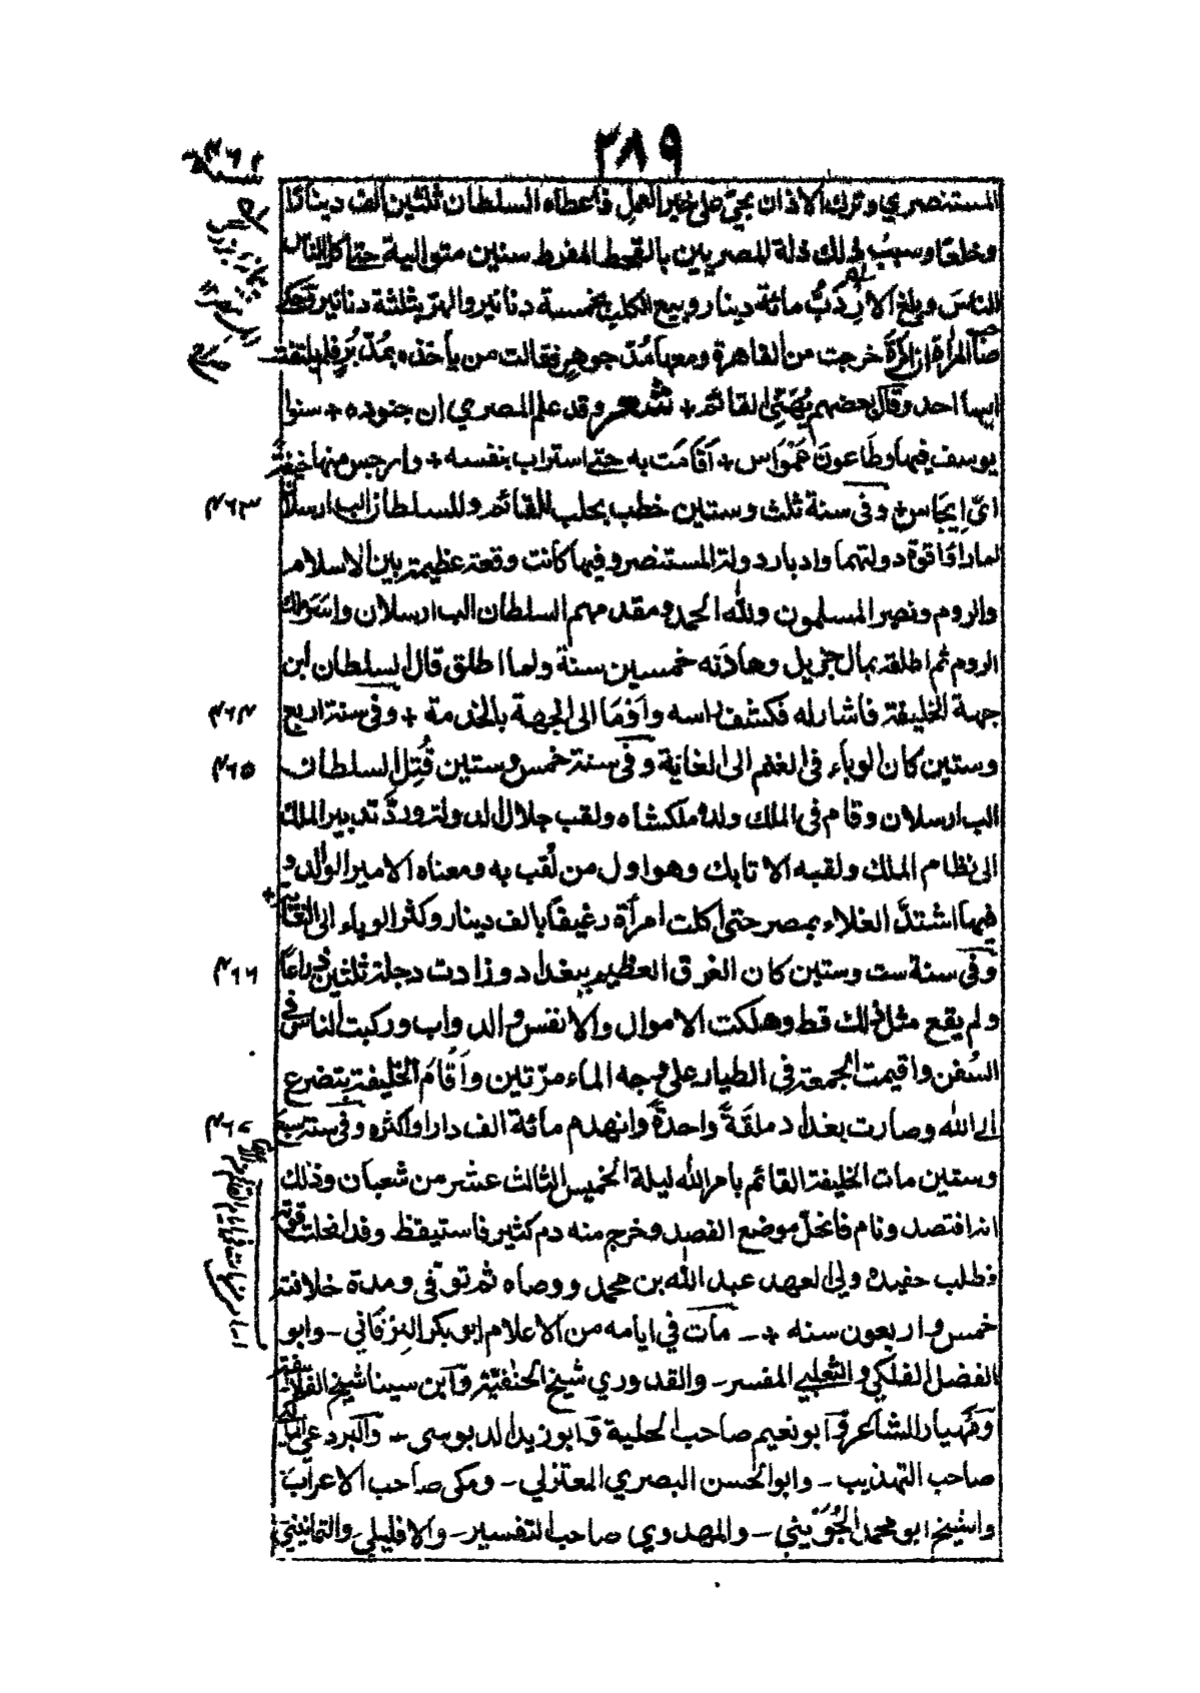 ٣٨٩
٤٦٢
المستنصري وترك الاذان بحي على خير العمل فاعطاه السلطان ثلثين الف دينارا
وخلعا وسبب ذلك ذلة المصريين بالقحط المفرط سنين متوالية حتى اكل الناس
الناسَ وبلغ الاردَبُّ مائة دينار وبيع الكلب بخمسة دنانير والهرّ بثلثة دنانير وحكى
صاحب المرآة ان امرأة خرجت من القاهرة ومعها مُدّ جوهرٍ فقالت من ياخذه بمُدّ بُرّ فلم يلتفت
اليها احد وقال بعضهم يُهَنّي القائم + شعر وقد علم المصري ان جنوده + سنوا
يوسف فيها وطَاعونَ عَمْواس + اَقامَت به حتى استراب بنفسه + واوجس منها خيفةً
ايّ اِيجَاس + وفى سنة ثلث وستين خطب بحلب للقائم وللسلطان الب ارسلان
٤٦٣
لما راَوا قوة دولتهما وادبار دولة المستنصر وفيها كانت وقعة عظيمة بين الاسلام
والروم ونصر المسلمون ولله الحمد ومقدمهم السلطان الب ارسلان واَسَرَ ملك
الروم ثم اطلقه بمال جزيل وهادَنه خمسين سنة ولما اطلق قال السلطان اين
جهة الخليفة فاشار له فكشف راسه واَومَا الى الجهة بالخدمة + وفى سنة اربع
٤٦٤
وستين كان الوباء فى الغنم الى الغاية وفى سنة خمس وستين قُتِل السلطان
٤٦٥
الب ارسلان وقام فى الملك ولده ملكشاه ولقب جلال الدولة وردّ تدبير الملك
الى نظام الملك ولقبه الاتابك وهو اول من لُقب به ومعناه الامير الوالد و
فيها اشتدَّ الغلاء بمصر حتى اكلت امرأة رغيفًا بالف دينار وكثر الوباء الى الغاية +
وفى سنة ست وستين كان الغرق العظيم ببغداد وزادت دجلة ثلثين ذراعًا
٤٦٦
ولم يقع مثل ذلك قط وهلكت الاموال والانفس والدواب وركبت الناس فى
السُفن واقيمت الجمعة فى الطيار على وجه الماء مرّتين واَقَامَ الخليفة يتضرع
الى الله وصارت بغداد ملقَةً واحدةً وانهدم مائة الف دار او اكثره وفى سنة سبع
٤٦٧
وستين مات الخليفة القائم بامر الله ليلة الخميس الثالث عشر من شعبان وذلك
انه افتصد ونام فانحلّ موضع الفصد وخرج منه دم كثير فاستيقظ وقد انحلت قوته
فطلب حفيده ولي العهد عبد الله بن محمد ووصاه ثم توفى ومدة خلافته
خمس واربعون سنه + ـ مات فى ايامه من الاعلام ابو بكر البرقاني ـ وابو
الفضل الفلكي و الثعلبي المفسر ـ والقدوري شيخ الحنفية وابن سينا شيخ الفلاسفة
ومَهيار الشاعر وابو نعيم صاحب الحلية وابو زيد الدبوسى ـ والبرادعي المالكي
صاحب التهذيب ـ وابو الحسن البصري المعتزلي ـ ومكى صاحب الاعراب
والشيخ ابو محمد الجُوَيني ـ والمهدوي صاحب التفسير ـ والافليلي والثمانيني